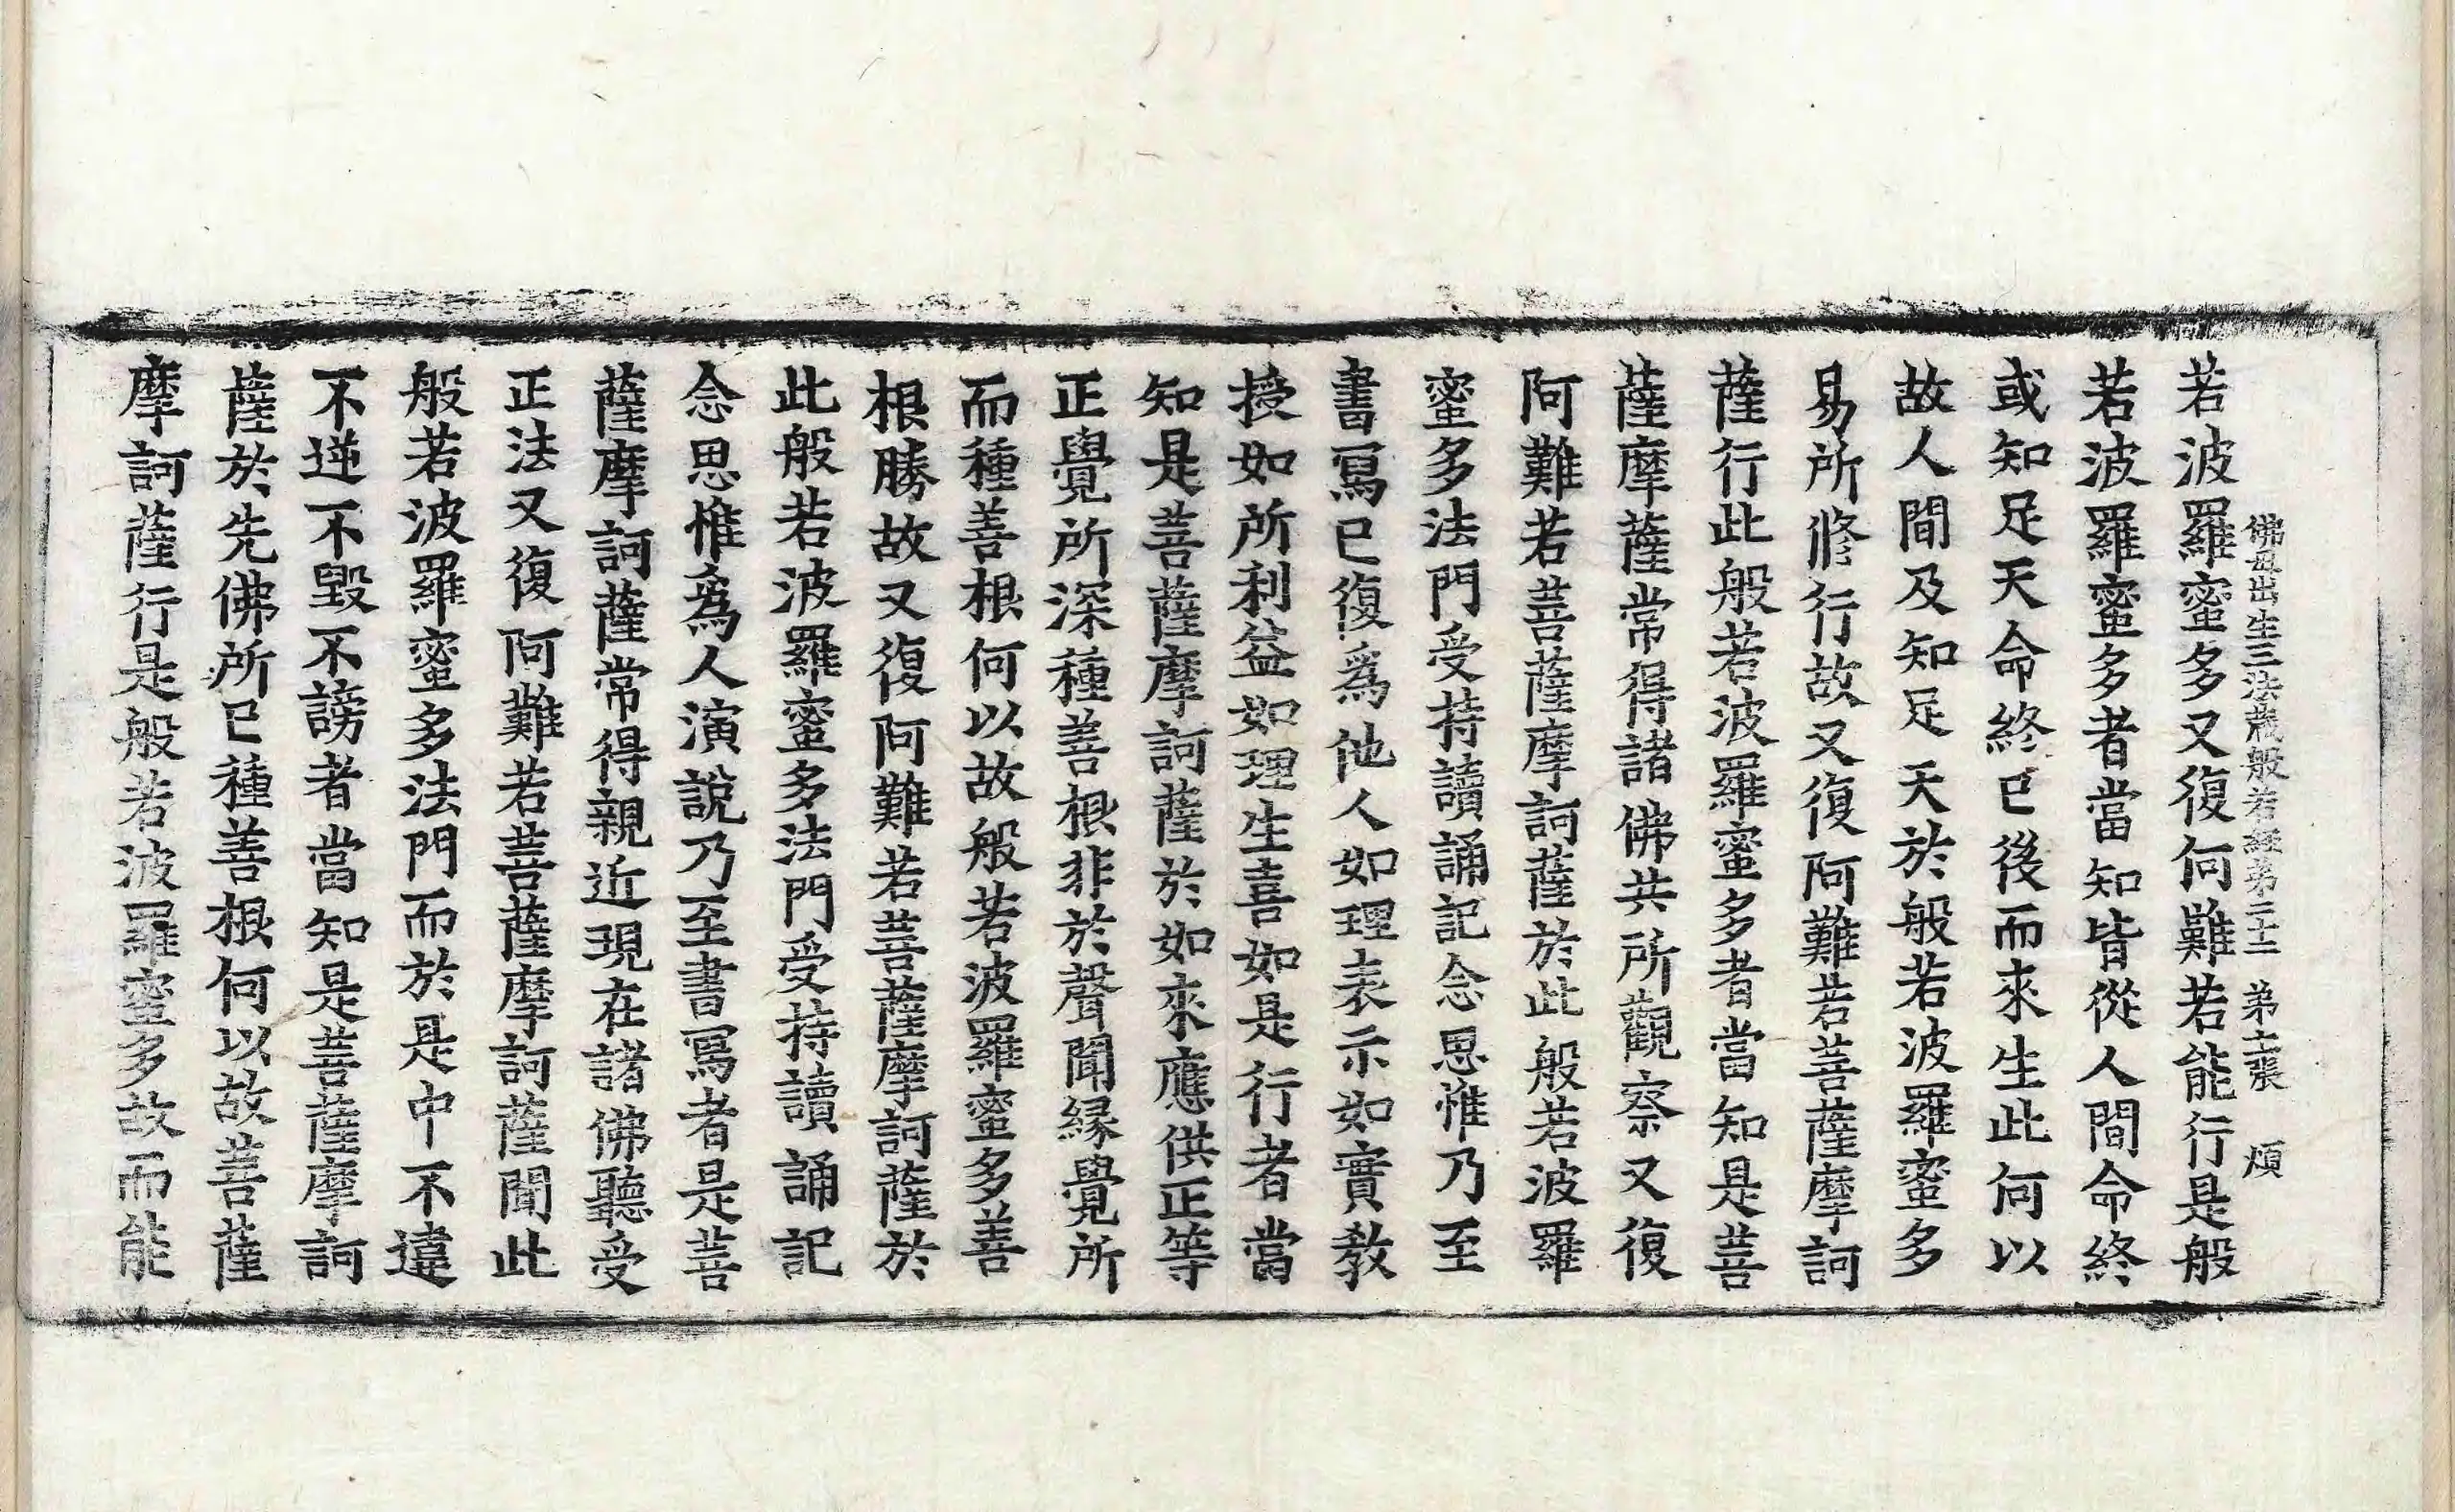 佛母出生三法藏般若經第二十二　第十二張　煩
若波羅蜜多又復何難若能行是般
若波羅蜜多者當知皆從人間命終
或知足天命終已後而來生此何以
故人間及知足天於般若波羅蜜多
易所修行故又復阿難若菩薩摩訶
薩行此般若波羅蜜多者當知是菩
薩摩薩常得諸佛共所觀察又復
阿難若菩薩摩訶薩於此般若波羅
蜜多法門受持讀誦記念思惟乃至
書寫已復爲他人如理表示如實教
授如所利益如理生喜如是行者當
知是菩薩摩訶薩於如來應供正等
正覺所深種善根非於聲聞緣覺所
而種善根何以故般若波羅蜜多善
根勝故又復阿難若菩薩摩訶薩於
此般若波羅蜜多法門受持讀誦記
念思惟爲人演說乃至書寫者是菩
薩摩訶薩常得親近現在諸佛聽受
正法又復阿難若菩薩摩訶薩聞此
般若波羅蜜多法門而於是中不違
不逆不毀不謗者當知是菩薩摩訶
薩於先佛所已種善根何以故菩薩
摩訶薩行是般若波羅蜜多故而能